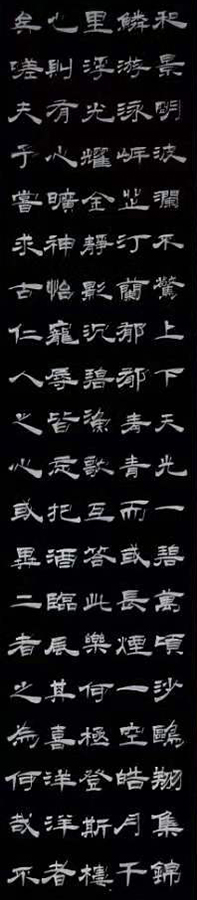 和景明波瀾不驚上下天光一碧萬頃沙鷗翔集錦
鱗游泳岸芷汀蘭郁郁青青而或長煙一空皓月千
里浮光耀金靜影沉碧漁歌互答此樂何極登斯樓
也則有心曠神怡寵辱皆忘把酒臨風其喜洋洋者
矣嗟夫予嘗求古仁人之心或異二者之為何哉不